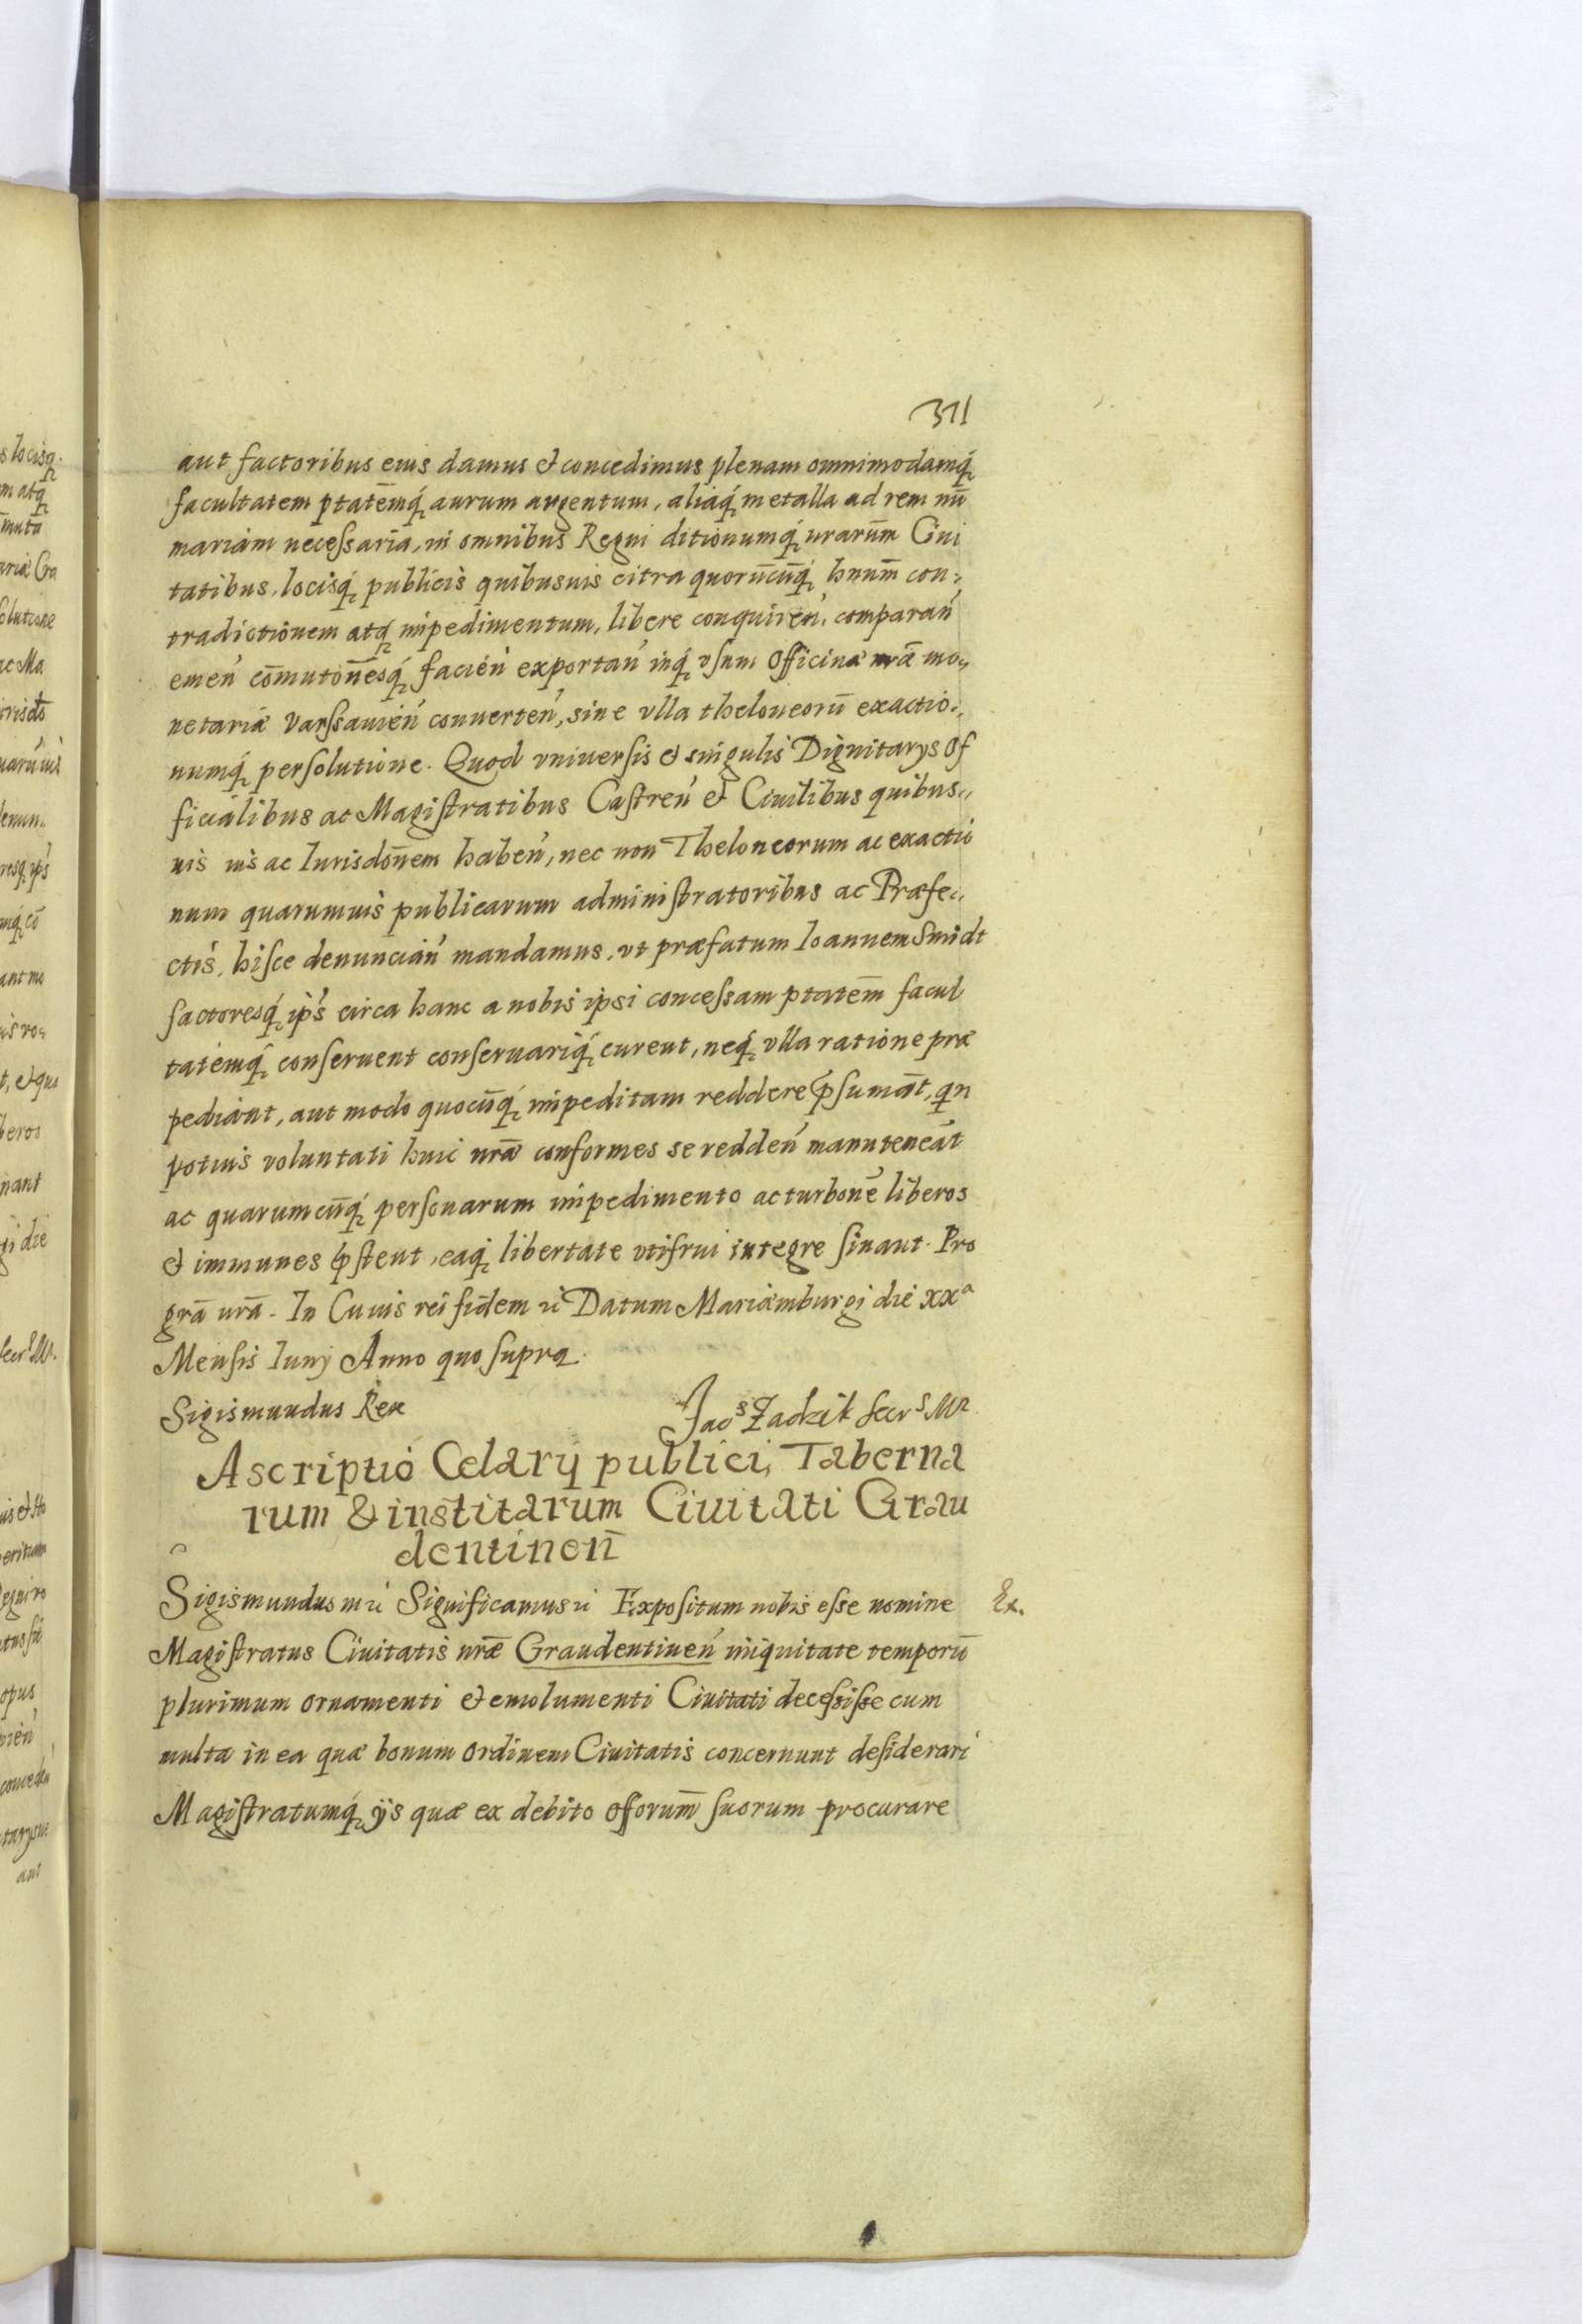 311
aut factoribus eius damus et concedimus plenam omnimodamq́;
facultatem ptat̄emq́; aurum argentum, aliaq́; metalla ad rem nū
mariam necessaria, in omnibus Regni ditionumq́; nrarum̄ Ciui
tatibus, locisq́; publicis quibusuis citra quorūcūq́; hnum̄ con:
tradictionem atq; impedimentum, libere conquiren̄, comparań
emeń com̄uton̄esq́; facień exportań inq́; vsum Officinæ nrǣ mo:
netariæ Varssauień conuerteń, sine vlla theloneorū exactio:
numq́; persolutione. Quod vniuersis et singulis Dignitarys Of
ficialibus ac Magistratibus Castreń et Ciuilibus quibus:
uis ius ac Iurisdon̄em habeń, nec non Theloneorum ac exactio
num quarumuis publicarum administratoribus ac Præfe:
ctis, hisce denunciań mandamus, vt præfatum Ioannem Smidt
factoresq́; ip̓s circa hanc a nobis ipsi concessam ptatem̄ facul
tatemq́; conseruent conseruariq́; curent, neq́; vlla ratione præ
pediant, aut modo quocūq́; impeditam reddere p̄sumāt, qn
potius voluntati huic nrǣ conformes se reddeń manuteneāt
ac quarumcūq́; personarum impedimento ac turbonē liberos
et immunes p̄stent, eaq; libertate vtifrui integre sinant. Pro
grā nrā. In Cuius rei fidem ɾc Datum Mariæmburgi die xxa
Mensis Iunij Anno quo supra.
Sigismundus Rex
Jacs Zadzik Secrs Mr
Ascriptio Celarij publici, Taberna
rum & institarum Ciuitati Grau
dentinen̄
Sigismundus III ɾc Significamus ɾc Expositum nobis esse nomine
Ex.
Magistratus Ciuitatis nrǣ Graudentineń iniquitate temporū
plurimum ornamenti et emolumenti Ciuitati decessisse cum
multa in ea quæ bonum ordinem Ciuitatis concernunt desiderari
Magistratumq́; ijs quæ ex debito offorum̄ suorum procurare